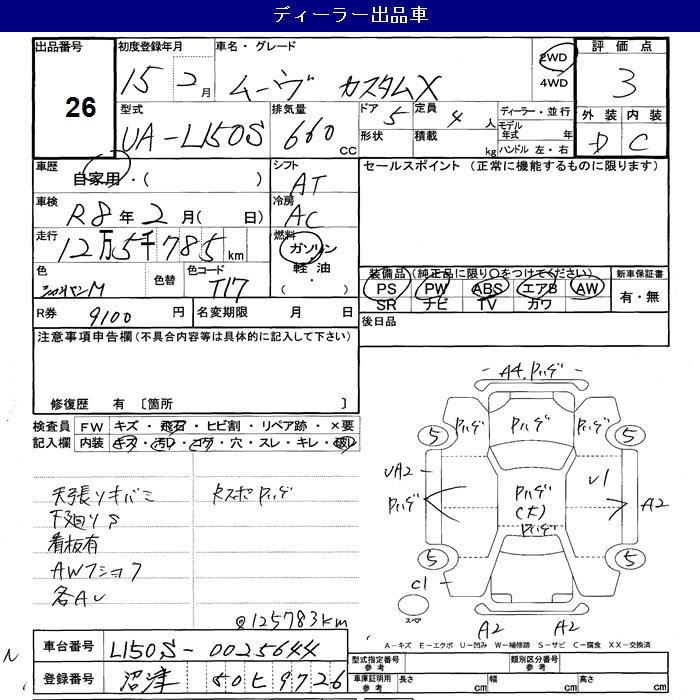 ディーラー出品車
出品番号 初度登録年月 車名・グレード 評価点
26 15 2月 ムーヴ カスタムX 2WD 4WD 3
型式 排気量 ドア 定員 ディーラー・並行 外装 内装
UA-L150S 660 CC 5 4人 モデル年式 年 D C
形状 積載 kg ハンドル 左・右
車歴 シフト セールスポイント (正常に機能するものに限ります)
自家用・( ) AT
車検 R8年2月( 日) 冷房 AC
走行 12万5千785km 燃料 ガソリン 軽油 ・( )
色 M 色替 色コード T17
装備品(純正品に限り○をつけてください) 新車保証書
PS PW ABS エアB AW 有・無
SR ナビ TV カワ
R券 9100円 名変期限 月 日 後日品
注意事項申告欄(不具合内容等は具体的に記入して下さい)
修復歴 有 〔箇所 〕
検査員 FW キズ・飛石・ヒビ割・リペア跡・×要
記入欄 内装 キズ・汚レ・コゲ・穴・スレ・キレ・破レ
天張リキバミ RスポPハゲ
下廻りS
看板有
AWフショク
各AU
◎125783km
A4.Pハゲ
Pハゲ Pハゲ Pハゲ
5 5
UA2 U1
Pハゲ Pハゲ(大) A2
Pハゲ
5 5
C1
スペア
A2 A2
A-キズ E-エクボ U-凹み W-補修跡 S-サビ C-腐食 XX-交換済
車台番号 L150S-0025644
登録番号 沼津 50と9726
型式指定番号 参考 類別区分番号 参考
車庫証明用 参考 長さ cm 幅 cm 高さ cm
N